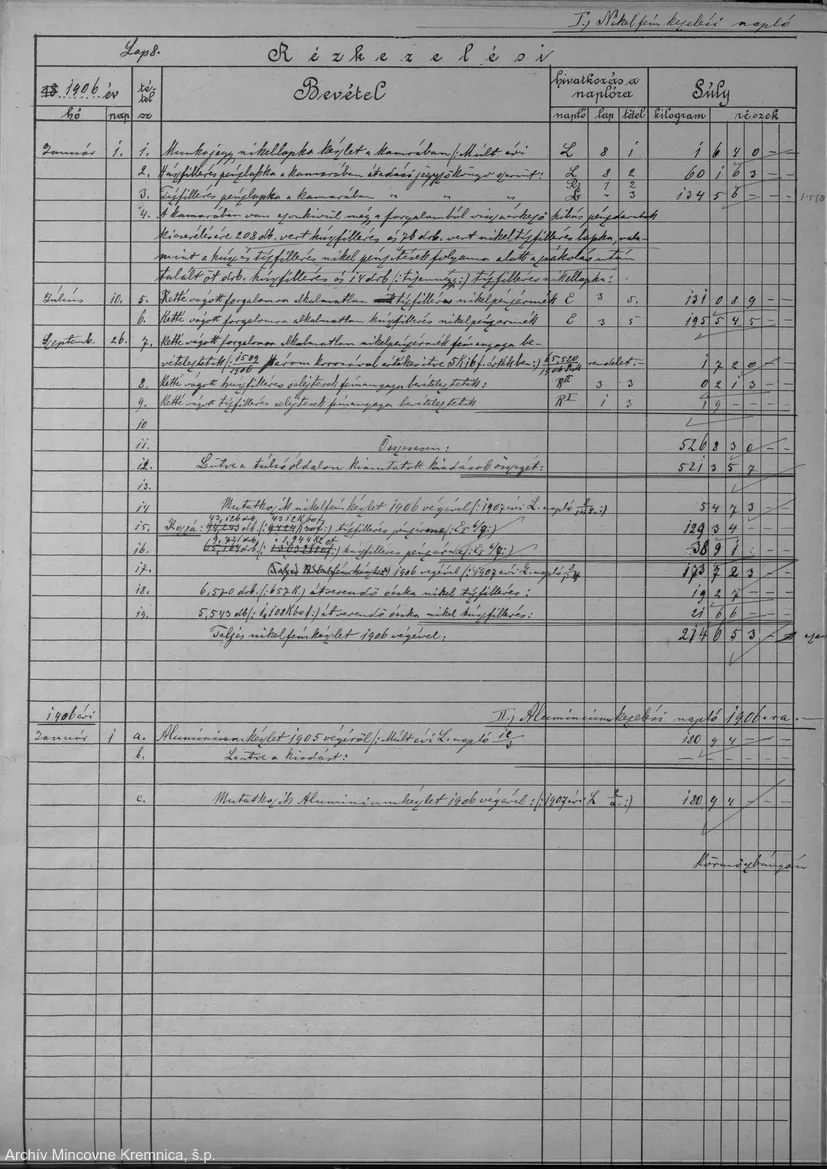 I.) Nikelfémkezelési napló
Lap 8.
Rézkezelési
1906 év
tétel sz
Bevétel
hivatkozás a naplóra
Súly
hó nap
napló lap tétel
kilogram részek
Január 1. 1. Munkajegy nikellapka készlet a kamarában /: Múlt évi L 8 1 1 6 4 0 - -
2. Húszfilléres pénzlapka a kamarában átadási jegyzőkönyv szerint: L 8 2 60 1 6 3 - -
3. Tízfilléres pénzlapka a kamarában " " " L " 3 134 5 6 - - -
4. A kamarában van ezenkívül még a forgalomból visszaérkező hibás pénzdarabok
kicserélésére 208 db. vert húszfilléres és 76 drb. vert nikel tízfilléres lapka, vala-
mint a húsz és tízfilléres nikel pénzjétések folyama alatt a zsákolás után
talált öt drb. húszfilléres és 14 drb (: tizennégy :) tízfilléres nikellapka:
Július 10. 5. Ketté vágott forgalomra alkalmatlan tízfilléres nikelpénzérmék E 3 5. 131 0 8 9 - -
6. Ketté vágott forgalomra alkalmatlan húszfilléres nikelpénzérmék E 3 5 195 5 4 5 - -
Septemb. 26. 7. Ketté vágott forgalomra alkalmatlan nikelpénzérmék fémanyaga be-
vételeztetett /: 1509/1906 három koronával értékesítve 5 K 16 f. értékben :) 65,520/1906 rendelet. - 1 7 2 0 - -
8. Ketté vágott húszfilléres selejtesek fémanyaga bevételeztetett: RII 3 3 0 2 1 3 - -
9. Ketté vágott tízfilléres selejtesek fémanyaga bevételeztetett RI 1 3 19 - - - - -
10
11. Összesen: 526 8 3 0 - -
12. Leütve a túlsó oldalon kimutatott kiadások összegét: 521 3 5 7 - -
13.
14 Mutatkozik nikelfémkészlet 1906 végével (: 1907 évi L. napló :) 5 4 7 3 - -
15. Hozzá: 43,126 db. 4312 K 60 f tízfilléres pénzérme 129 3 4 - - -
16. 9,721 drb. 1,944 K 20 f húszfilléres pénzérme 38 9 1 - - -
17. 1906 végével (: 1907 évi L. napló 173 7 2 3 - -
18. 6,570 drb. (: 657 K :) átverendő ócska nikel tízfilléres: 19 2 7 - -
19. 5,543 db (: 1,108 K 60 f :) átverendő ócska nikel húszfilléres: 21 6 6 - -
Teljes nikelfémkészlet 1906 végével: 214 6 5 3 - -
1906 évi
II.) Aluminiumkezelési napló 1906.-ra.
Január 1 a. Aluminiumkészlet 1905 végéről /: Múlt évi L. napló 12/3 180 9 4 - - -
b. Leütve a kiadást: - - - - -
c. Mutatkozik Aluminiumkészlet 1906 végével: (: 1907 évi L :) 180 9 4 - - -
Körmöczbányán
Archív Mincovne Kremnica, š.p.